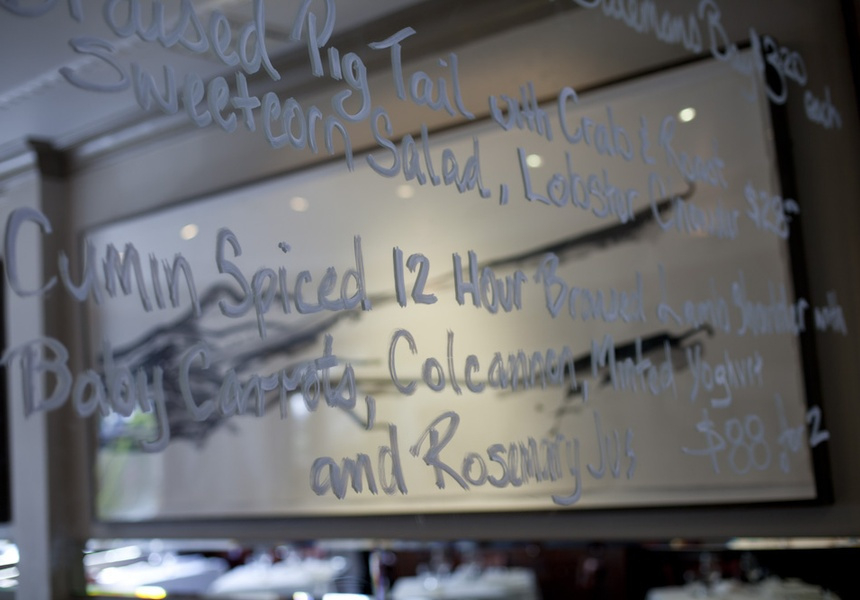 Bay $3.20 each
Braised Pig Tail with Crab & Roast
Sweetcorn Salad, Lobster $28
Cumin Spiced 12 Hour Braised Lamb Shoulder with
Baby Carrots, Colcannon, Minted Yoghurt
and Rosemary Jus $88 for 2